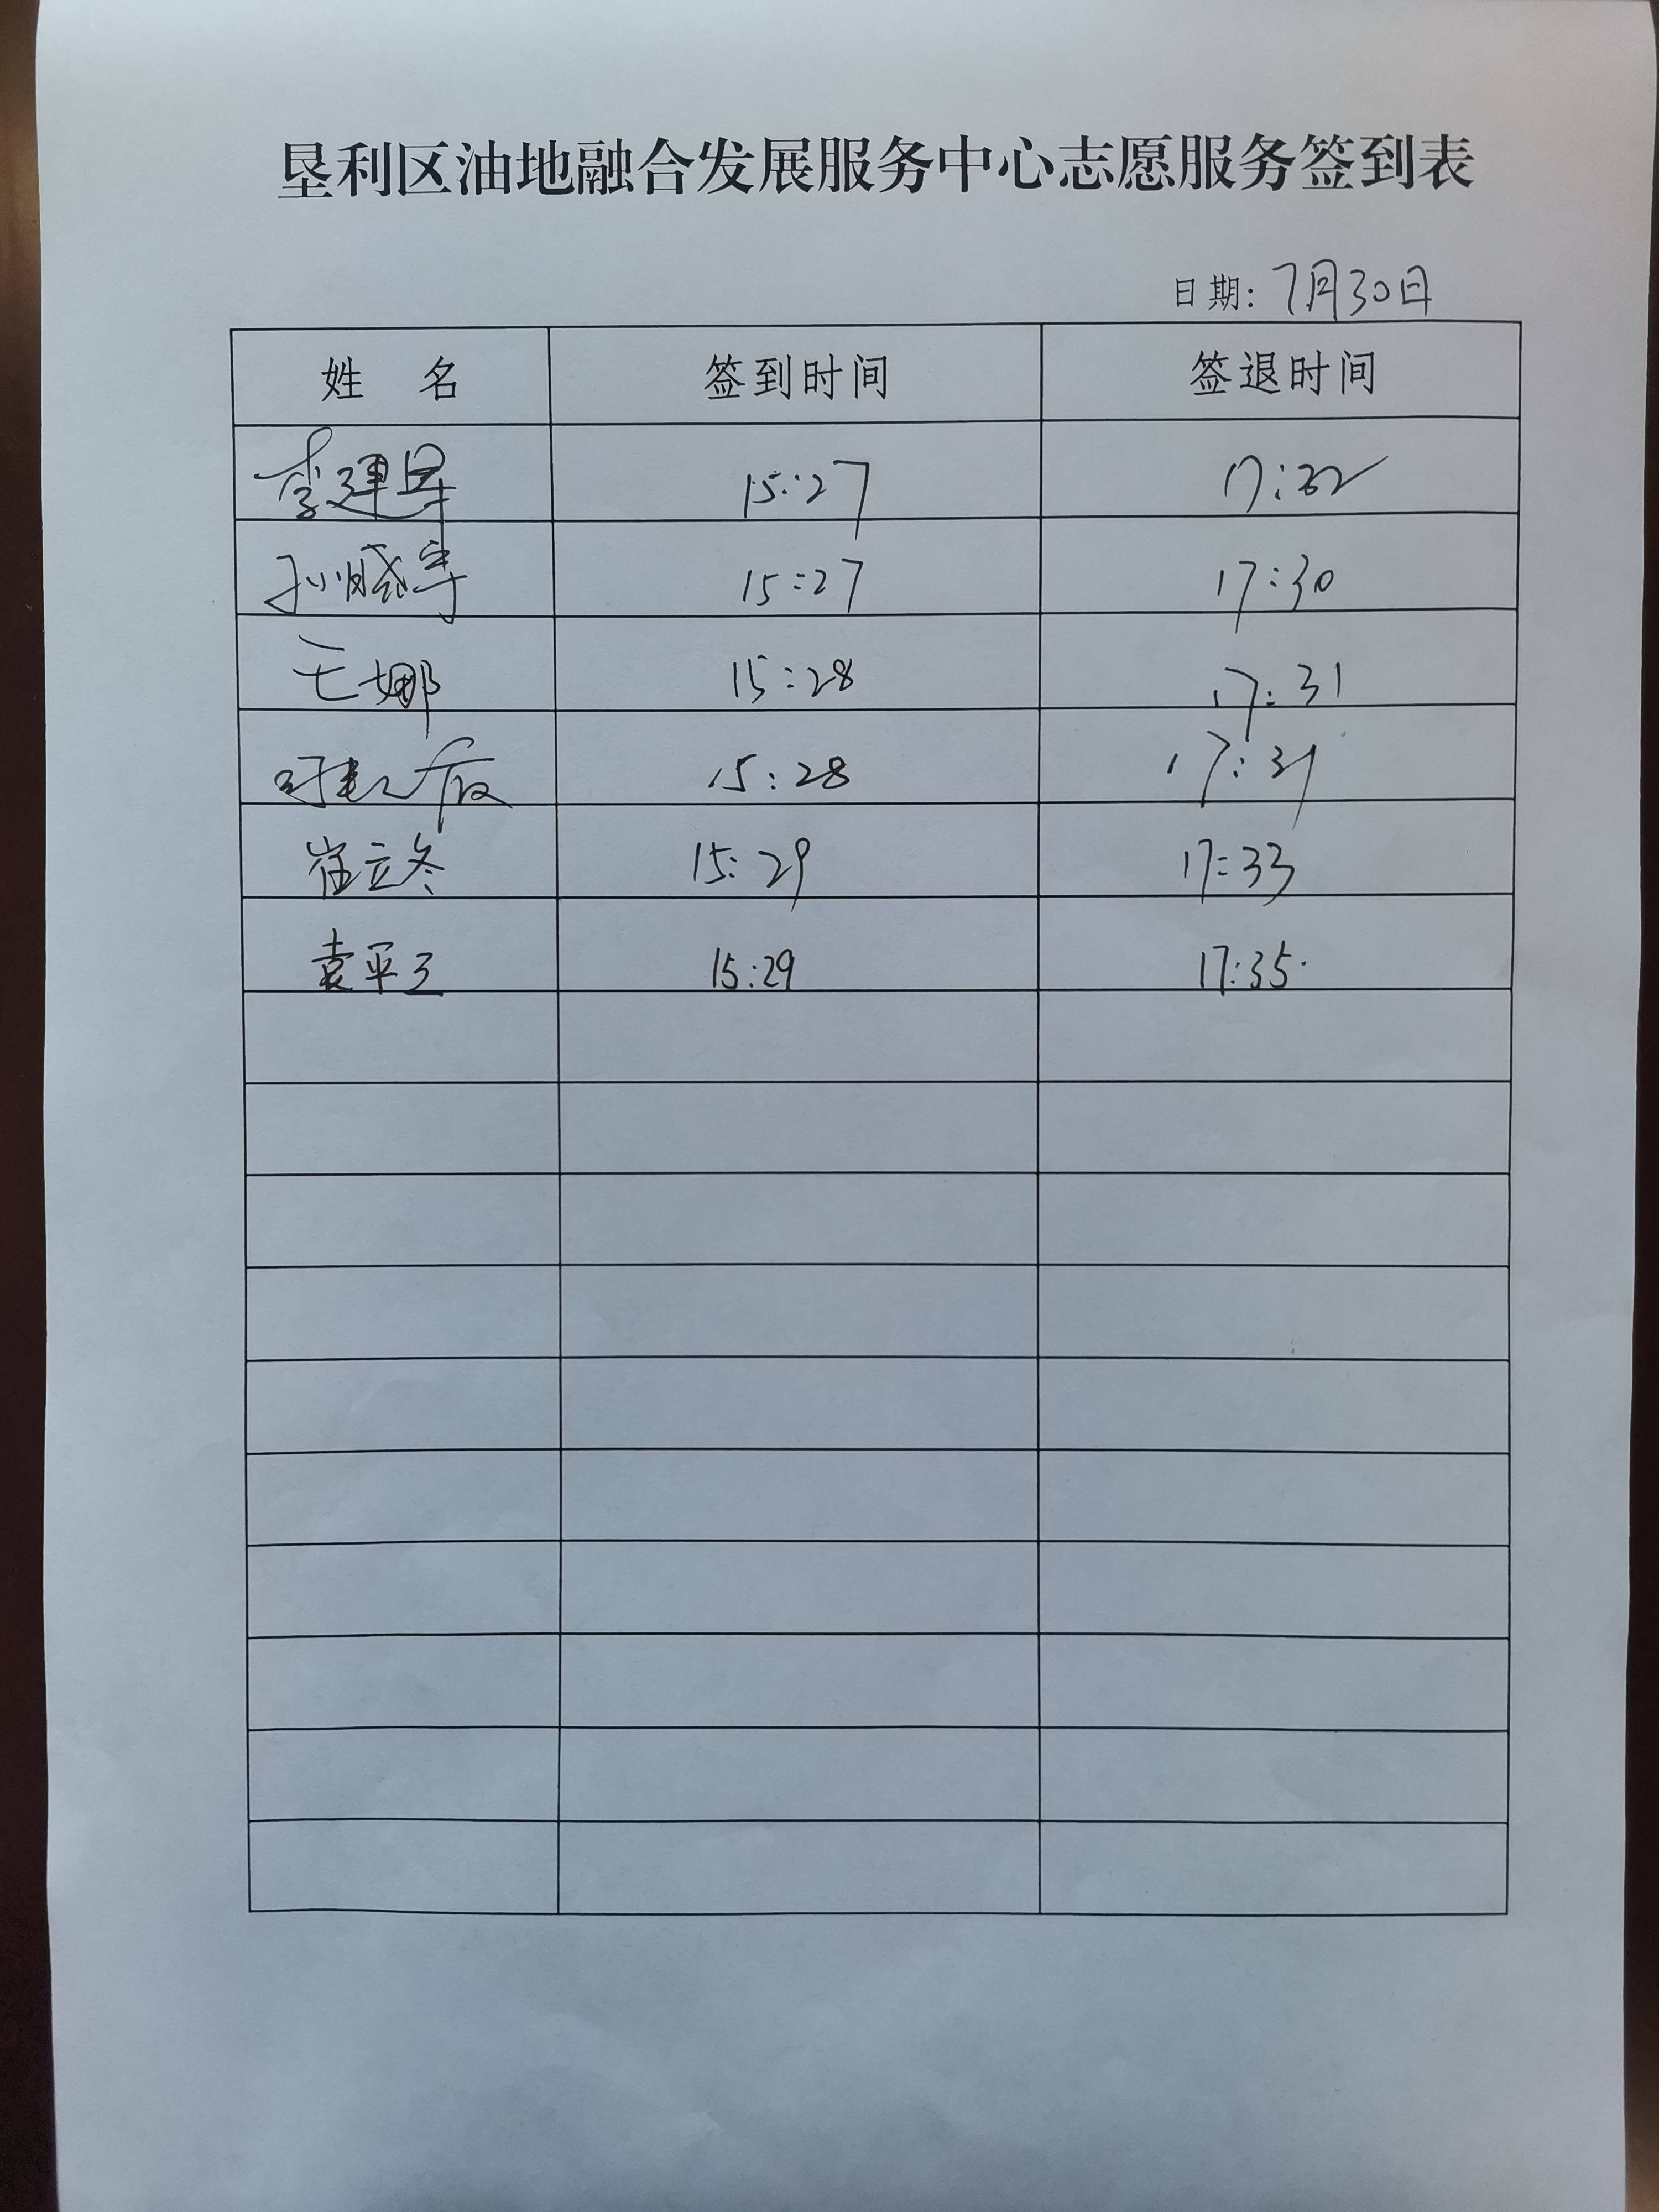 垦利区油地融合发展服务中心志愿服务签到表
日期: 7月30日
姓 名 签到时间 签退时间
李建军 15:27
15:27 17:30
王娜 15:28 17:31
15:28 17:31
崔立冬 15:29 17:33
袁平 15:29 17:35